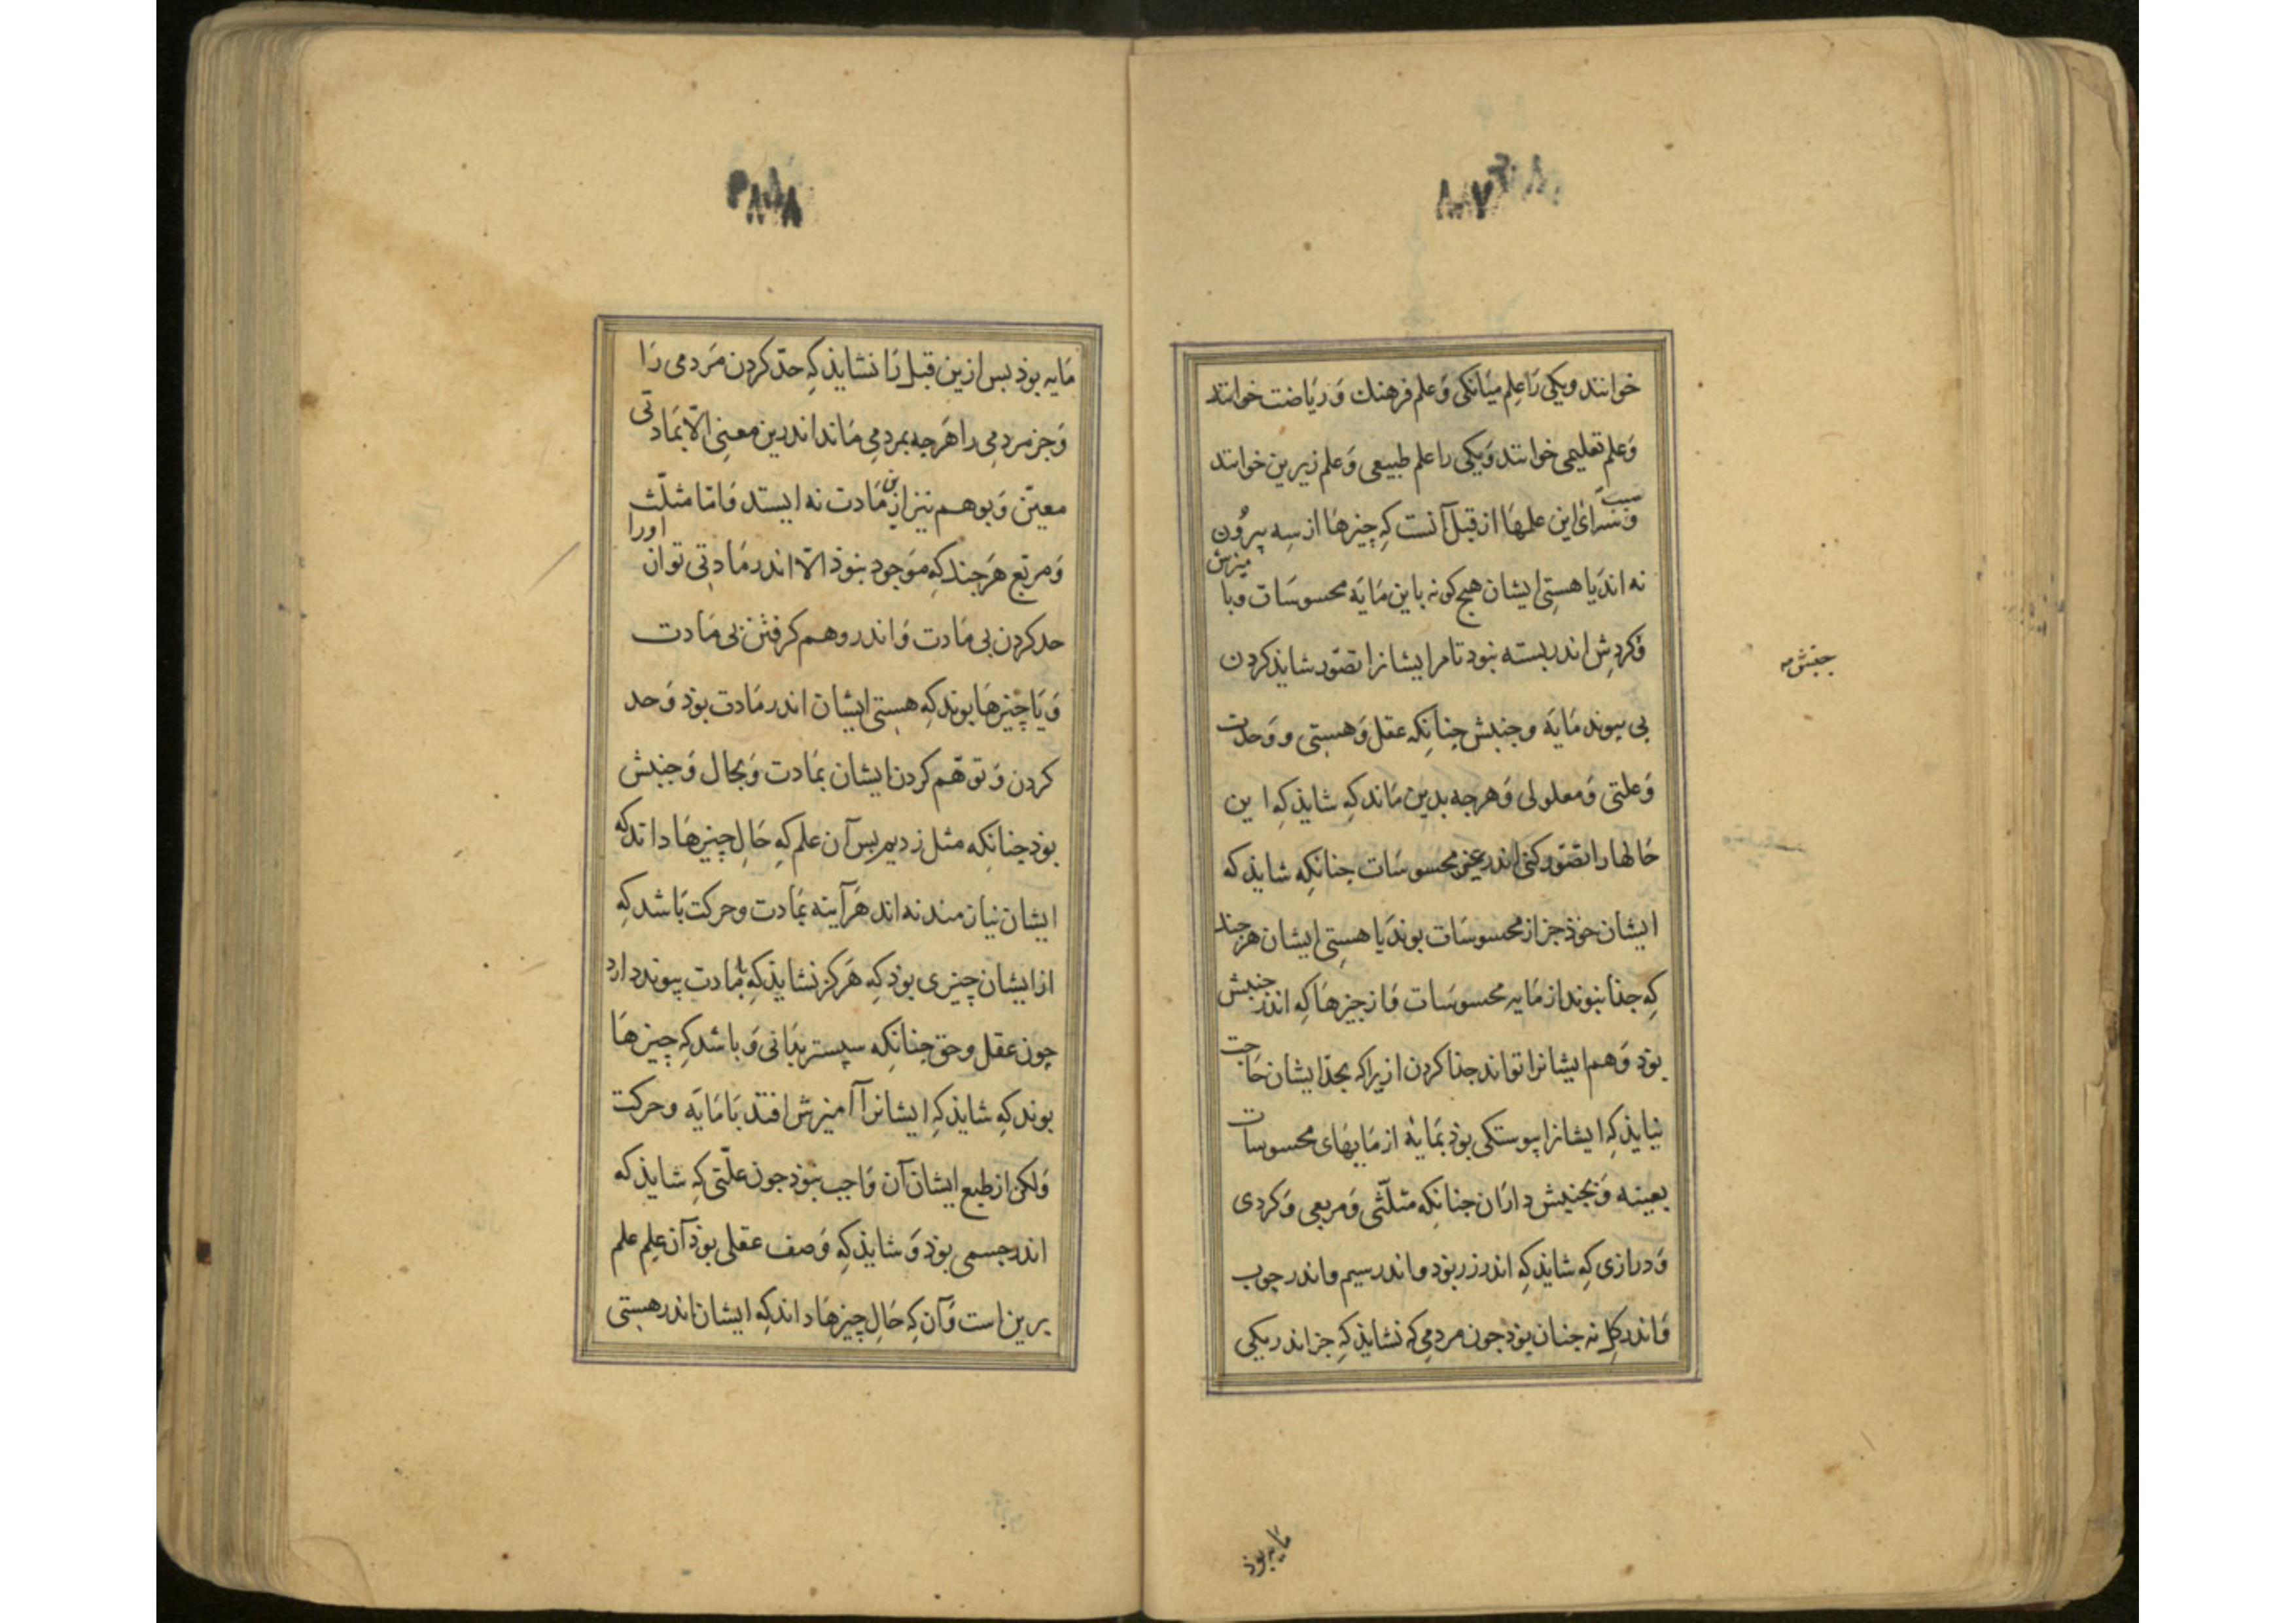 خوانند ویکی رَا عِلم میَانکی وَ علم فرهنك وَ ریَاضت خوانند
وَ علم تعلیمی خوانند وَ یکی را علم طبیعی وَ علم زیرین خوانند
سبب
این علمهَا از قبل آنست کِه چیزهَا از سِه بیرُون
نه اند یا هستی ایشان هیچ کونه باین مَایَه محسوسَات وبا
میزش
وَ کردِش اندر بسته نبود تا مر ایشانرا تصّور شایذ کردن
جنبش
بی پیوند مَایَه و جنبش چنانکه عقل وَ هستی و وَحدت
وَ علتی وَ معلولی وَ هرجه بدین مَاند کِه شایذ کِه این
حَالها را تصّور کنی اندر غیر محسوسَات جنانکِه شایذ که
ایشان خوذ جز از محسوسَات بوند یا هستی ایشان هر جند
کِه جذا نبوند از مَایه محسوسَات وَ از چیزهَا کِه اندر جنبش
بوَد وَ هم ایشانرا تواند جذا کردن ازیرا که بحدّ ایشان حَاجت
نیایذ کِه ایشانرا پیوستکی بوَذ بمَایَه از مَایهَای محسوسات
بعینه وَ بجنبش داران جنانکِه مثلّثی وَ مربعی وَ کردی
وَ درازی کِه شایذ کِه اندر زر بوَد و اندر سیم و اندر چوب
وَ اندر کِل نه جنان بوَذ جون مردمِی که نشایذ کِه جز اندر یکی
مَایه بوَذ
مَایه بوَذ بس ازین قبل رَا نشایذ کِه حدّ کردن مَردمی رَا
وَ جز مردمِی را هَرجه بمردمِی مَاند اندرین معنِی الّا بمَادتی
معیّن وَ بوهم نیز از مَادت نه ایستد فَامّا مثلّث
وَ مربّع هَرجند کِه مَوجود نبوَذ الّا اندر مَادتی توان
اورا
حد کردن بی مَادت وَ اندر وهم کرفتن بی مَادت
وَ یَا چیزهَا بوند کِه هستی ایشان اندر مَادت بوَذ وَ حد
کردن وَ توهّم کردن ایشان بمَادت وَ بحال وَ جنبش
بوَذ جنانکِه مثل زدیم بس آن علم که حَالِ چیزهَا داند که
ایشان نیازمند نه اند هَرآینه بمَادت و حرکت بَاشد کِه
از ایشان چیزی بوَذ کِه هَرکز نشایذ کِه بمادت پیوند دارد
چون عقل و حق چنانکِه سپستر بدَانی وَ باشد کِه چیزهَا
بوند کِه شایذ کِه ایشانرا آمیزش افتد بَا مَایَه و حرکت
وَ لکن از طبع ایشان آن وَاجب نبوَذ جون علّتی کِه شایذ که
اندر جسمی بوَذ وَ شایذ کِه وَصف عقلی بوَذ آن عِلم علم
برین است وَ آن کِه حَالِ چیزهَا داند کِه ایشان اندر هستی